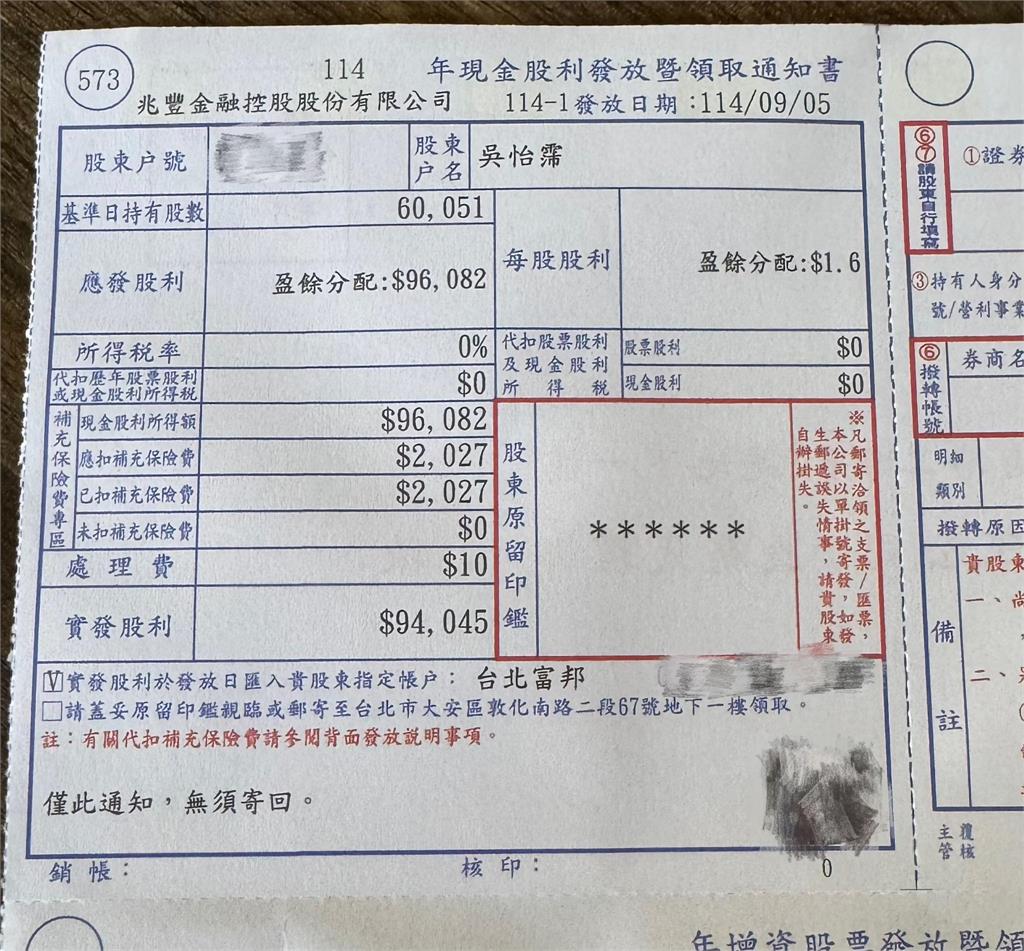 573
114 年現金股利發放暨領取通知書
兆豐金融控股股份有限公司 114-1發放日期:114/09/05
股東户號
股東户名 吳怡霈
基準日持有股數 60,051
應發股利 盈餘分配:$96,082
每股股利 盈餘分配:$1.6
所得稅率 0%
代扣歷年股票股利或現金股利所得稅 $0
代扣股票股利及現金股利所得稅
股票股利 $0
現金股利 $0
補充保險費專區
現金股利所得額 $96,082
應扣補充保險費 $2,027
已扣補充保險費 $2,027
未扣補充保險費 $0
處理費 $10
實發股利 $94,045
股東原留印鑑
******
※凡郵寄洽領之支票/匯票,
本公司以單掛號寄發,如發
生郵遞誤失情事,請貴股東
自辦掛失。
V實發股利於發放日匯入貴股東指定帳户: 台北富邦
□請蓋妥原留印鑑親臨或郵寄至台北市大安區敦化南路二段67號地下一樓領取。
註:有關代扣補充保險費請參閱背面發放說明事項。
僅此通知,無須寄回。
銷帳: 核印: 0
⑥⑦請股東自行填寫
①證券
③持有人身分
號/營利事業
⑥撥轉帳號
券商名
明細類別
撥轉原因
備註
貴股東
一、尚
二、
主管
覆核
年增資股票發放暨領